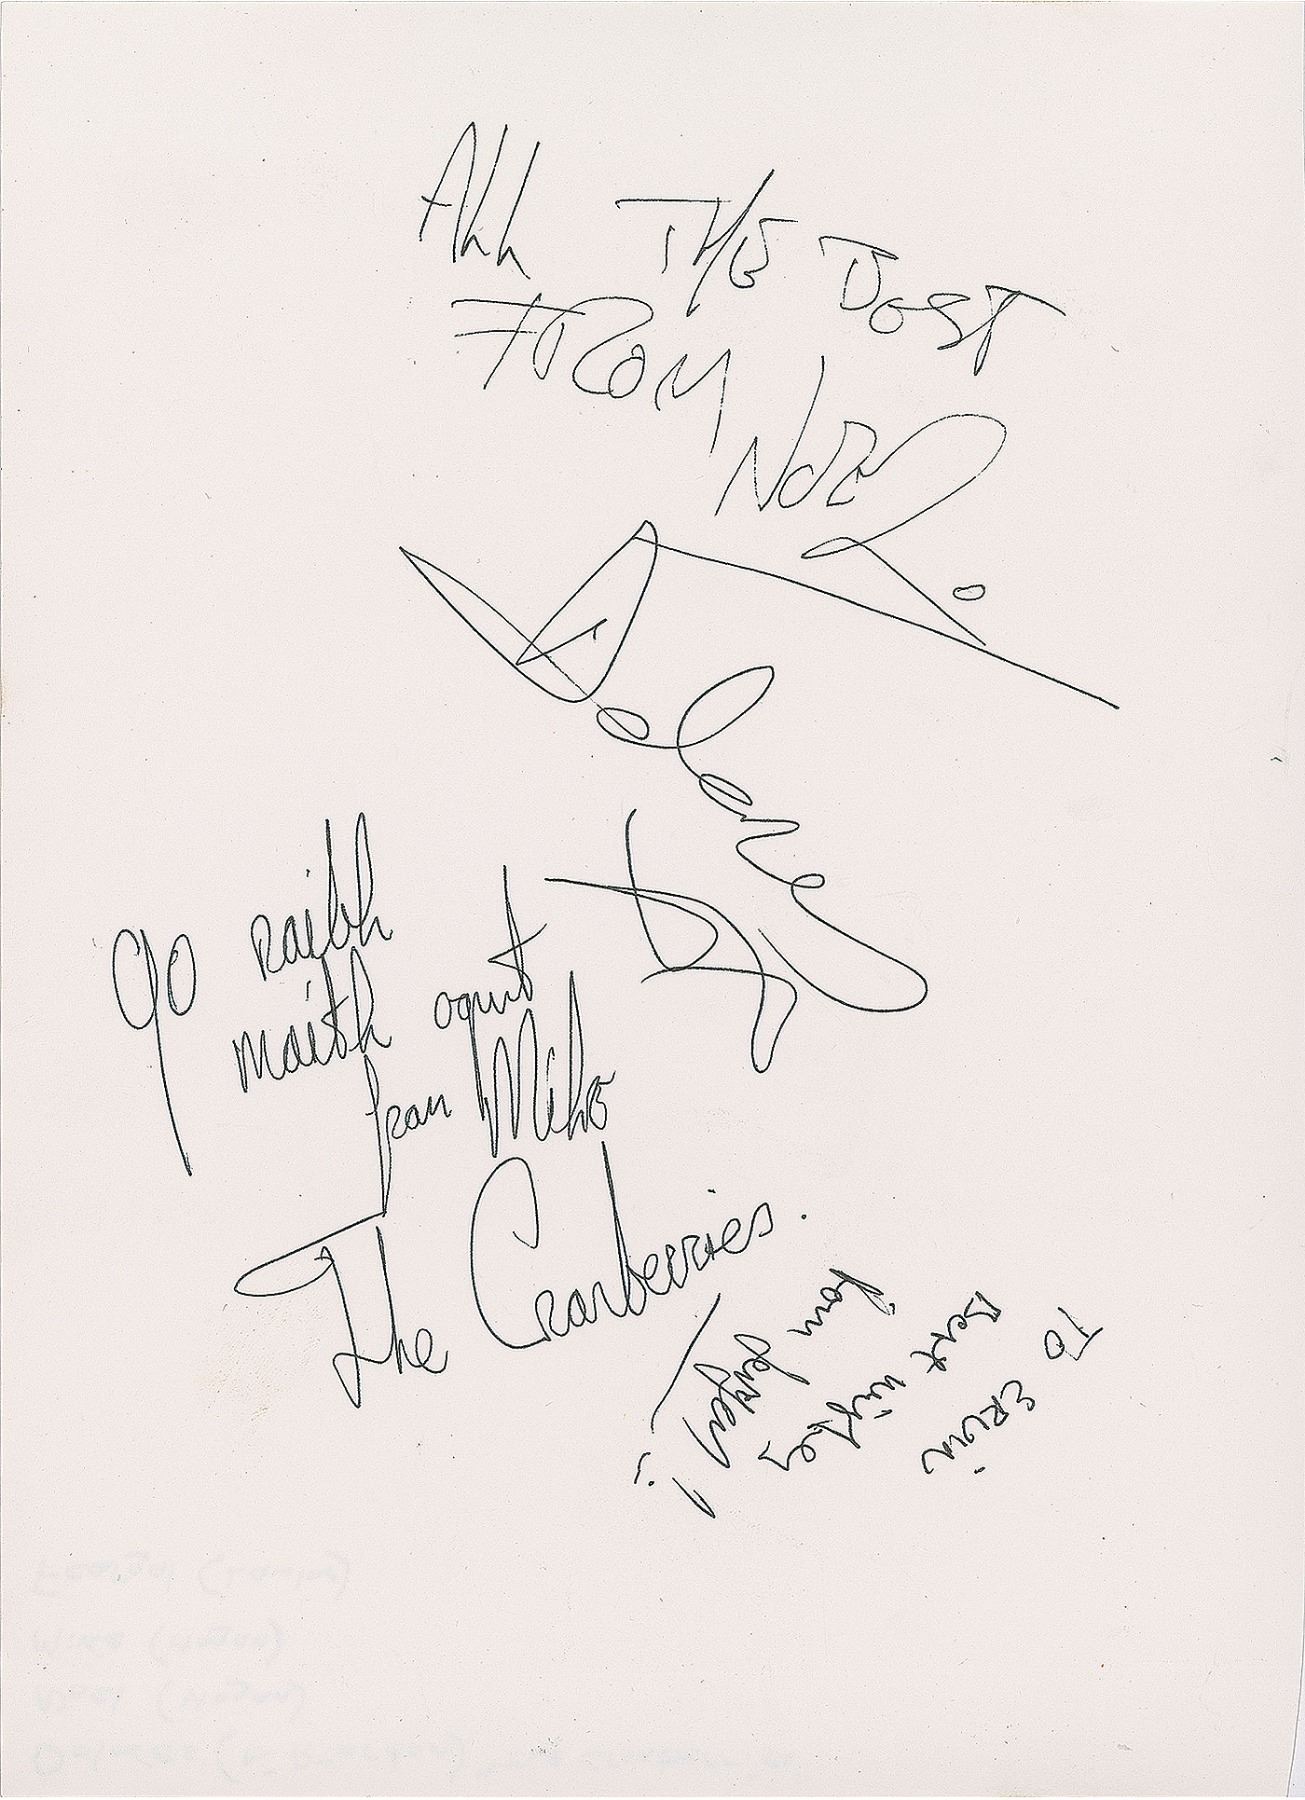 All THE BEST
FROM NOEL
Dolores
go raibh
maith agut
from Mike
The Cranberries.
TO ERWIN
Best wishes
from fergal!